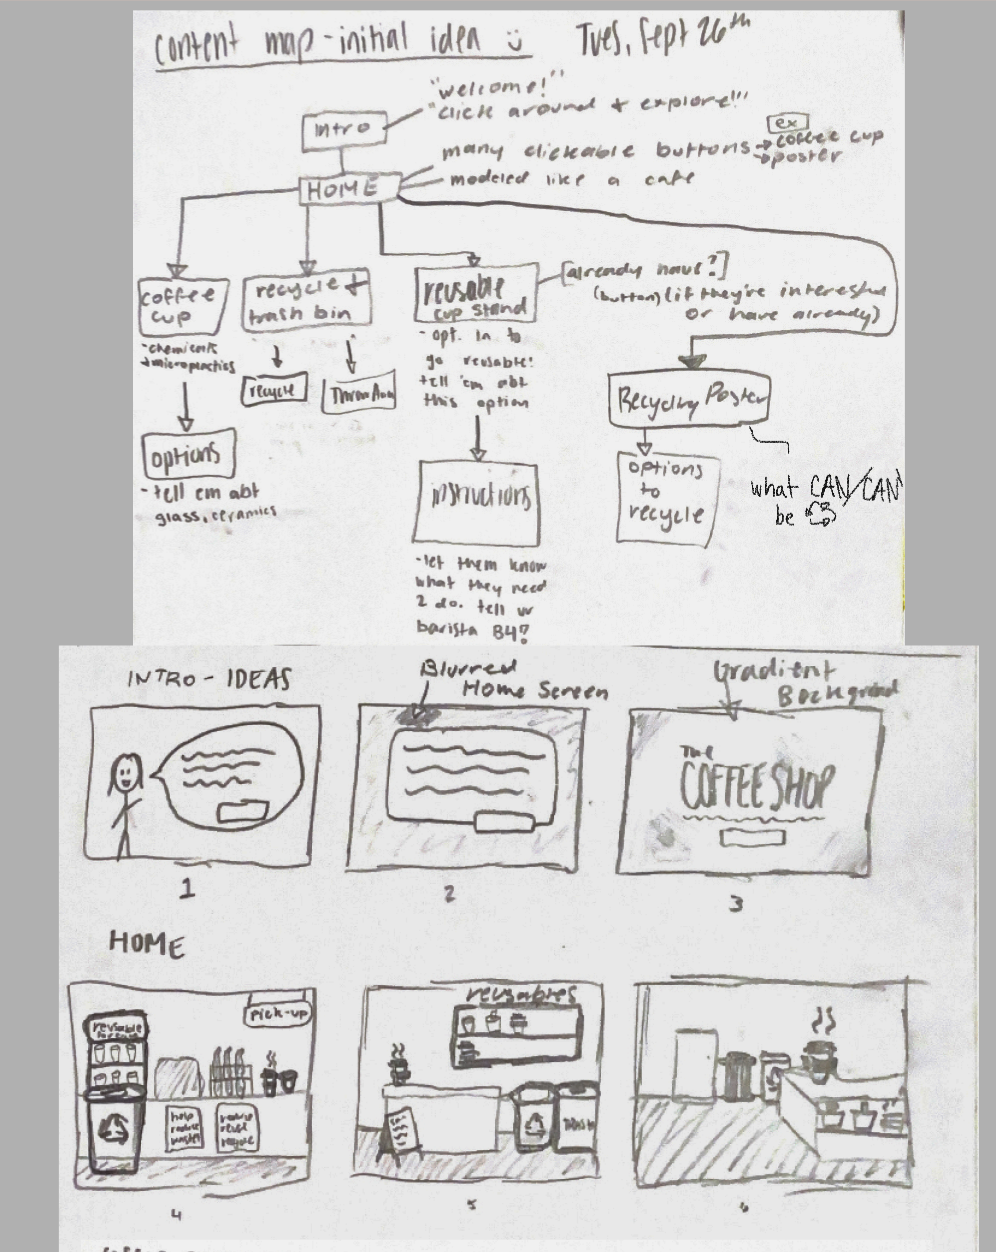 content map - initial idea
Tues, Sept 26th
"welcome!"
"click around + explore!!"
intro
many clickeable buttons → coffee cup
ex
→ poster
HOME
modeled like a cafe
coffee
cup
recycle +
trash bin
reusable
cup stand
[already have?]
(button) (if they're interested
or have already)
-chemicals
+microplastics
recycle
Throw Away
- opt. in to
go reusable!
tell 'em abt
this option
Recycling Poster
options
- tell em abt
glass, ceramics
instructions
options
to
recycle
what CAN/CAN'
be
-let them know
what they need
2 do. tell ur
barista B4?
INTRO - IDEAS
Blurred
Home Screen
Gradient
Background
The
COFFEE SHOP
1
2
3
HOME
reusable
pick-up
help
reduce
waste!
reduce
reuse
recycle
4
reusables
TRASH
5
6